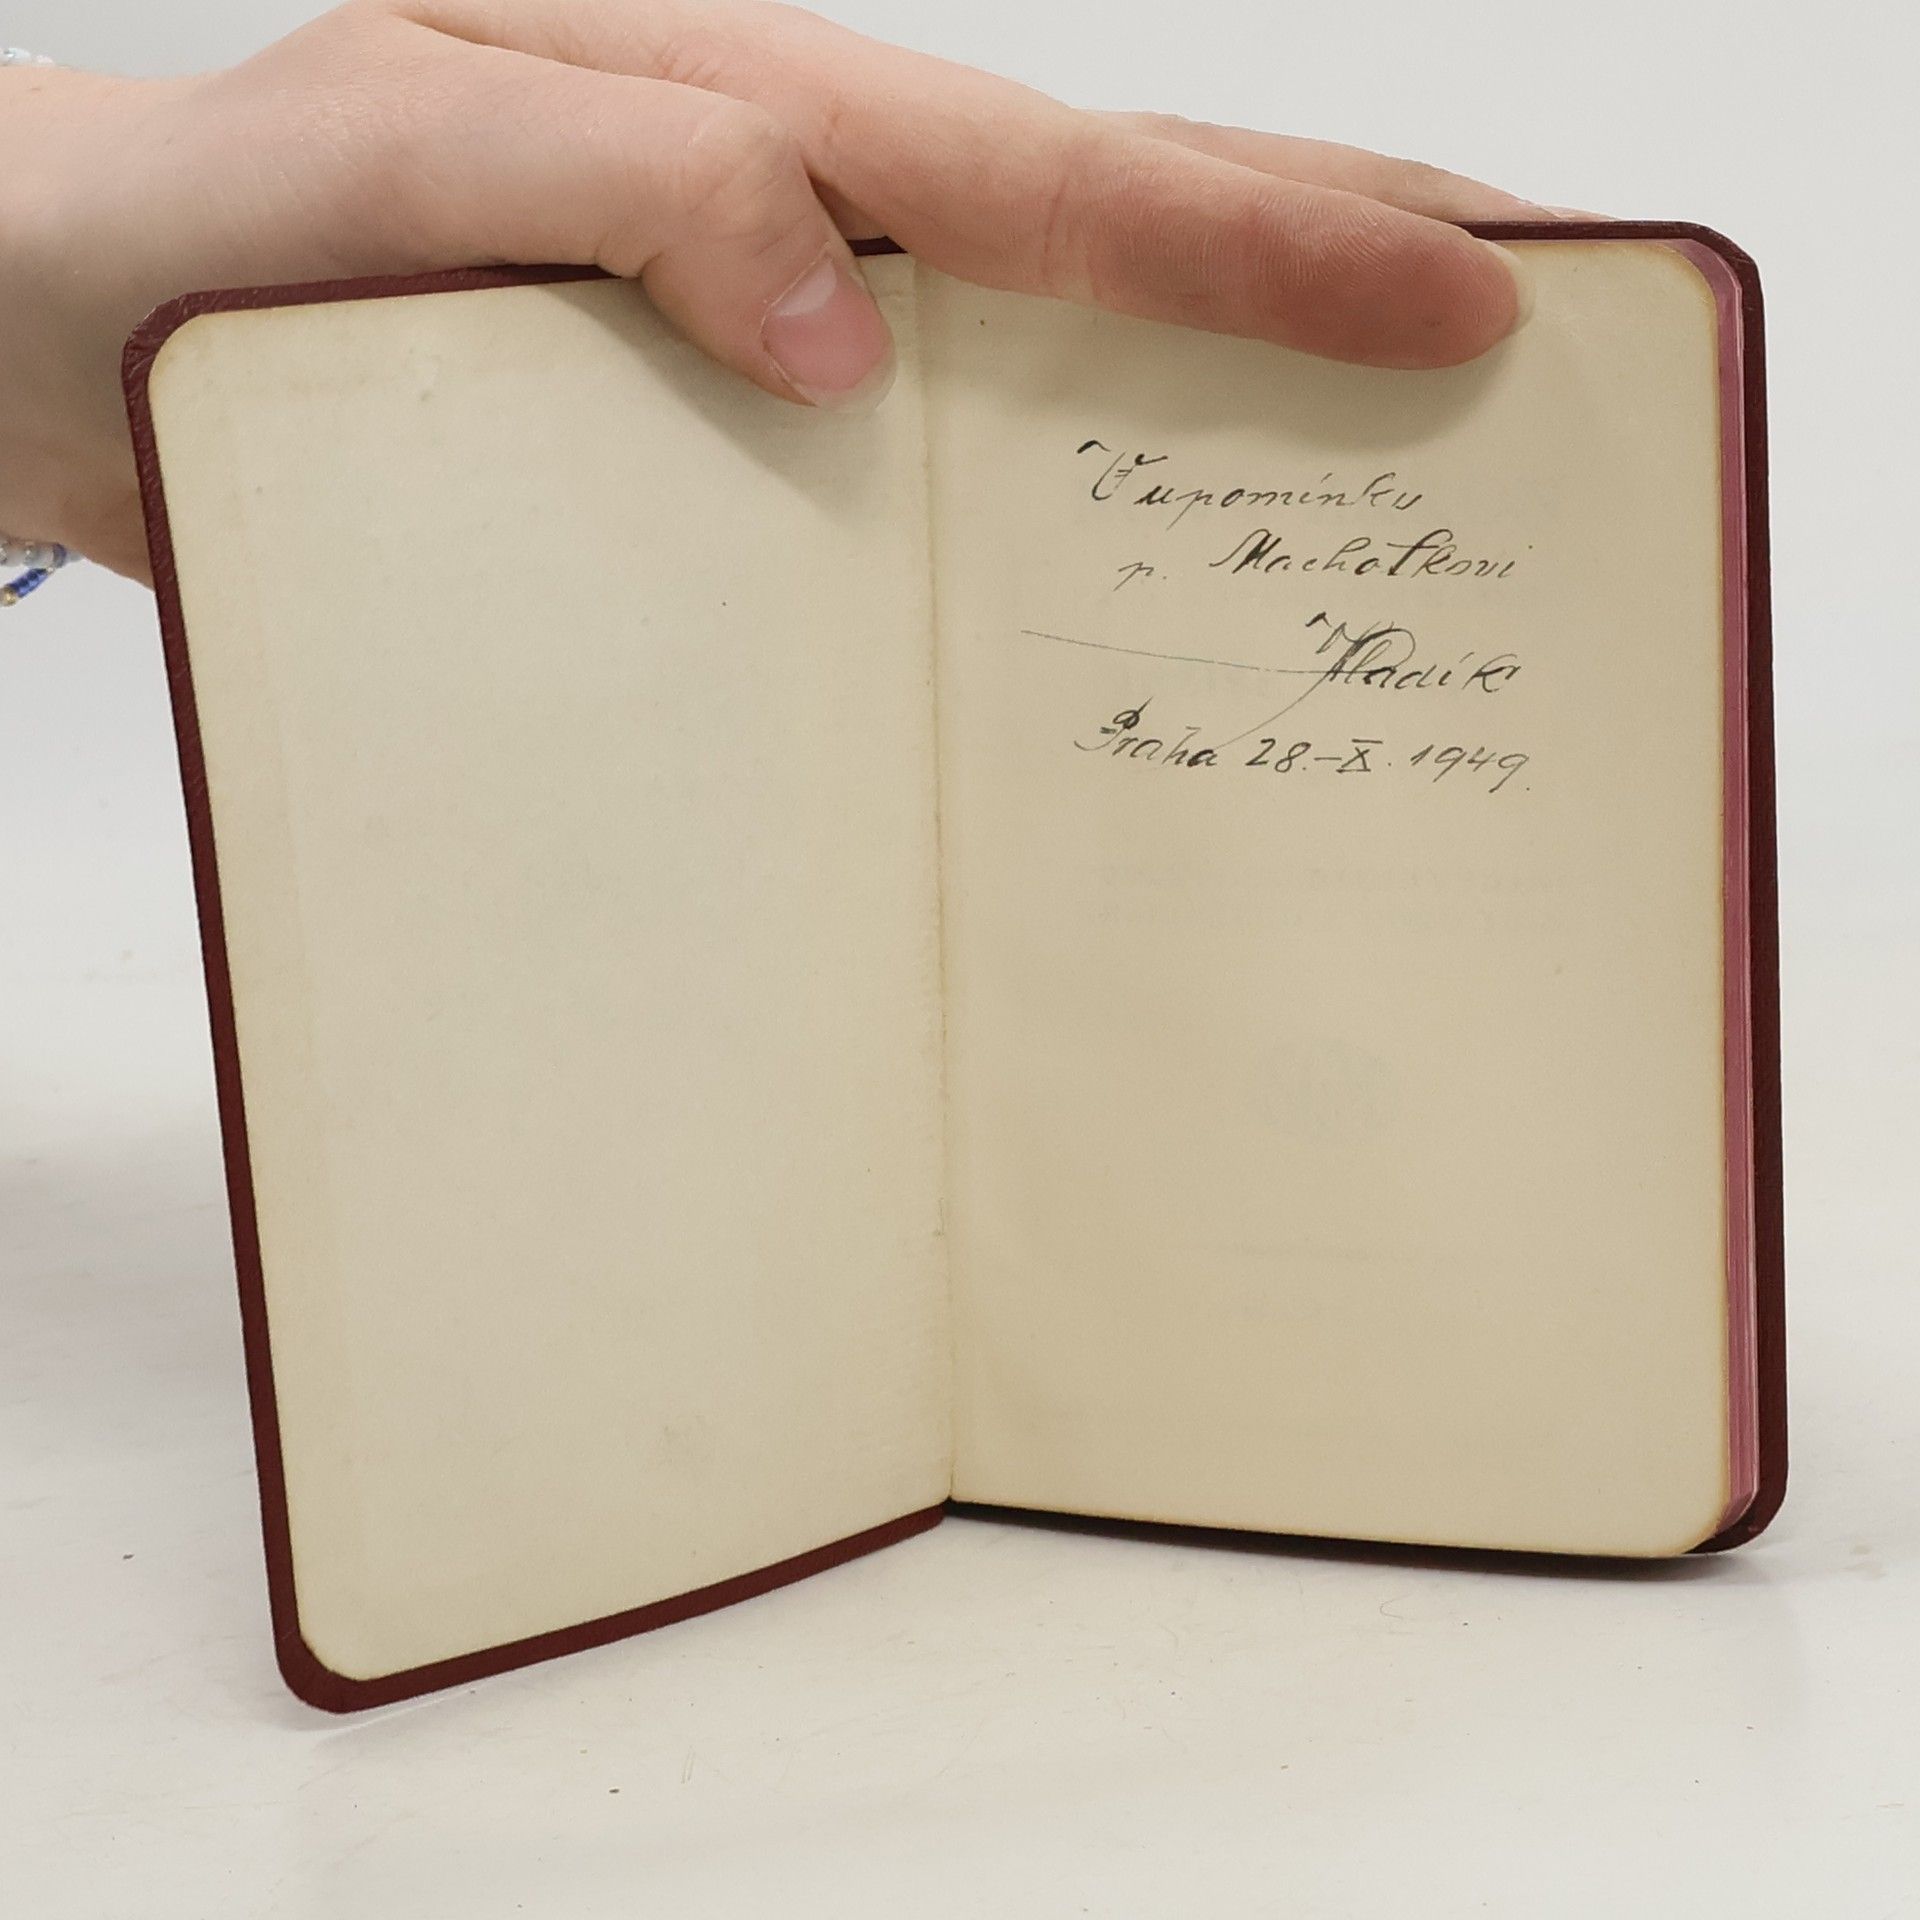 V upomínku
p. Machotkovi
Hladík
Praha 28.-X. 1949.